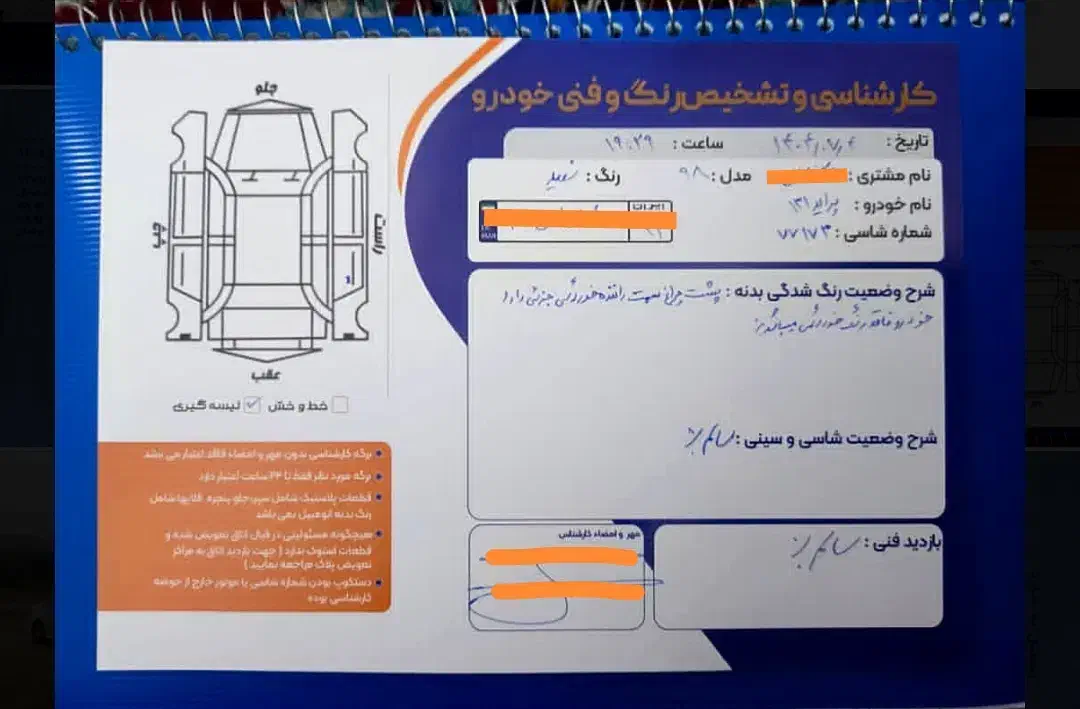 کارشناسی و تشخیص رنگ و فنی خودرو
تاریخ : ۱۴۰۴/۰۷/۰۴ ساعت : ۱۹:۲۹
نام مشتری : مدل : ۹۸ رنگ : سفید
نام خودرو : پراید ۱۳۱
ایران
شماره شاسی : ۷۷۱۷۳
شرح وضعیت رنگ شدگی بدنه : پشت چراغ سمت راننده خوردگی جزئی دارد
خودرو فاقد رنگ خوردگی میباشد
شرح وضعیت شاسی و سینی : سالم
بازدید فنی : سالم
مهر و امضاء کارشناس
جلو
چپ
راست
عقب
خط و خش لیسه گیری
برگه کارشناسی بدون مهر و امضاء فاقد اعتبار می باشد
برگه مورد نظر فقط تا ۲۴ ساعت اعتبار دارد
قطعات پلاستیک شامل سپر، جلو پنجره، قلابها شامل
رنگ بدنه اتومبیل نمی باشد
هیچگونه مسئولیتی در قبال اتاق تعویض شده و
قطعات استوک ندارد ( جهت بازدید اتاق به مراکز
تعویض پلاک مراجعه نمایید )
دستکوب بودن شماره شاسی یا موتور خارج از حوضه
کارشناسی بوده